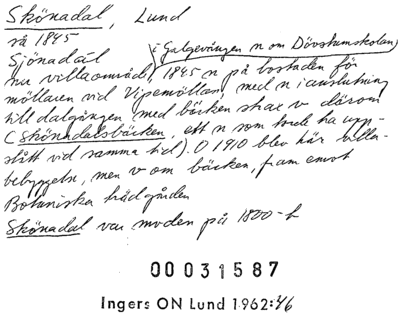 Skönadal, Lund
så 1845
Sjönadal (i Galgevången n om Dövstumskolan)
nu villaområd, 1845 n på bostaden för
möllaren vid Vipemöllan, med n i anslutning
till dalgången med bäcken strax v därom
(Skönadalsbäcken, ett n som torde ha upp-
stått vid samma tid). O 1910 blev här villa-
bebyggelse, men v om bäcken, fram emot
Botaniska trädgården
Skönadal var moden på 1800-t
00031587
Ingers ON Lund 1962:46